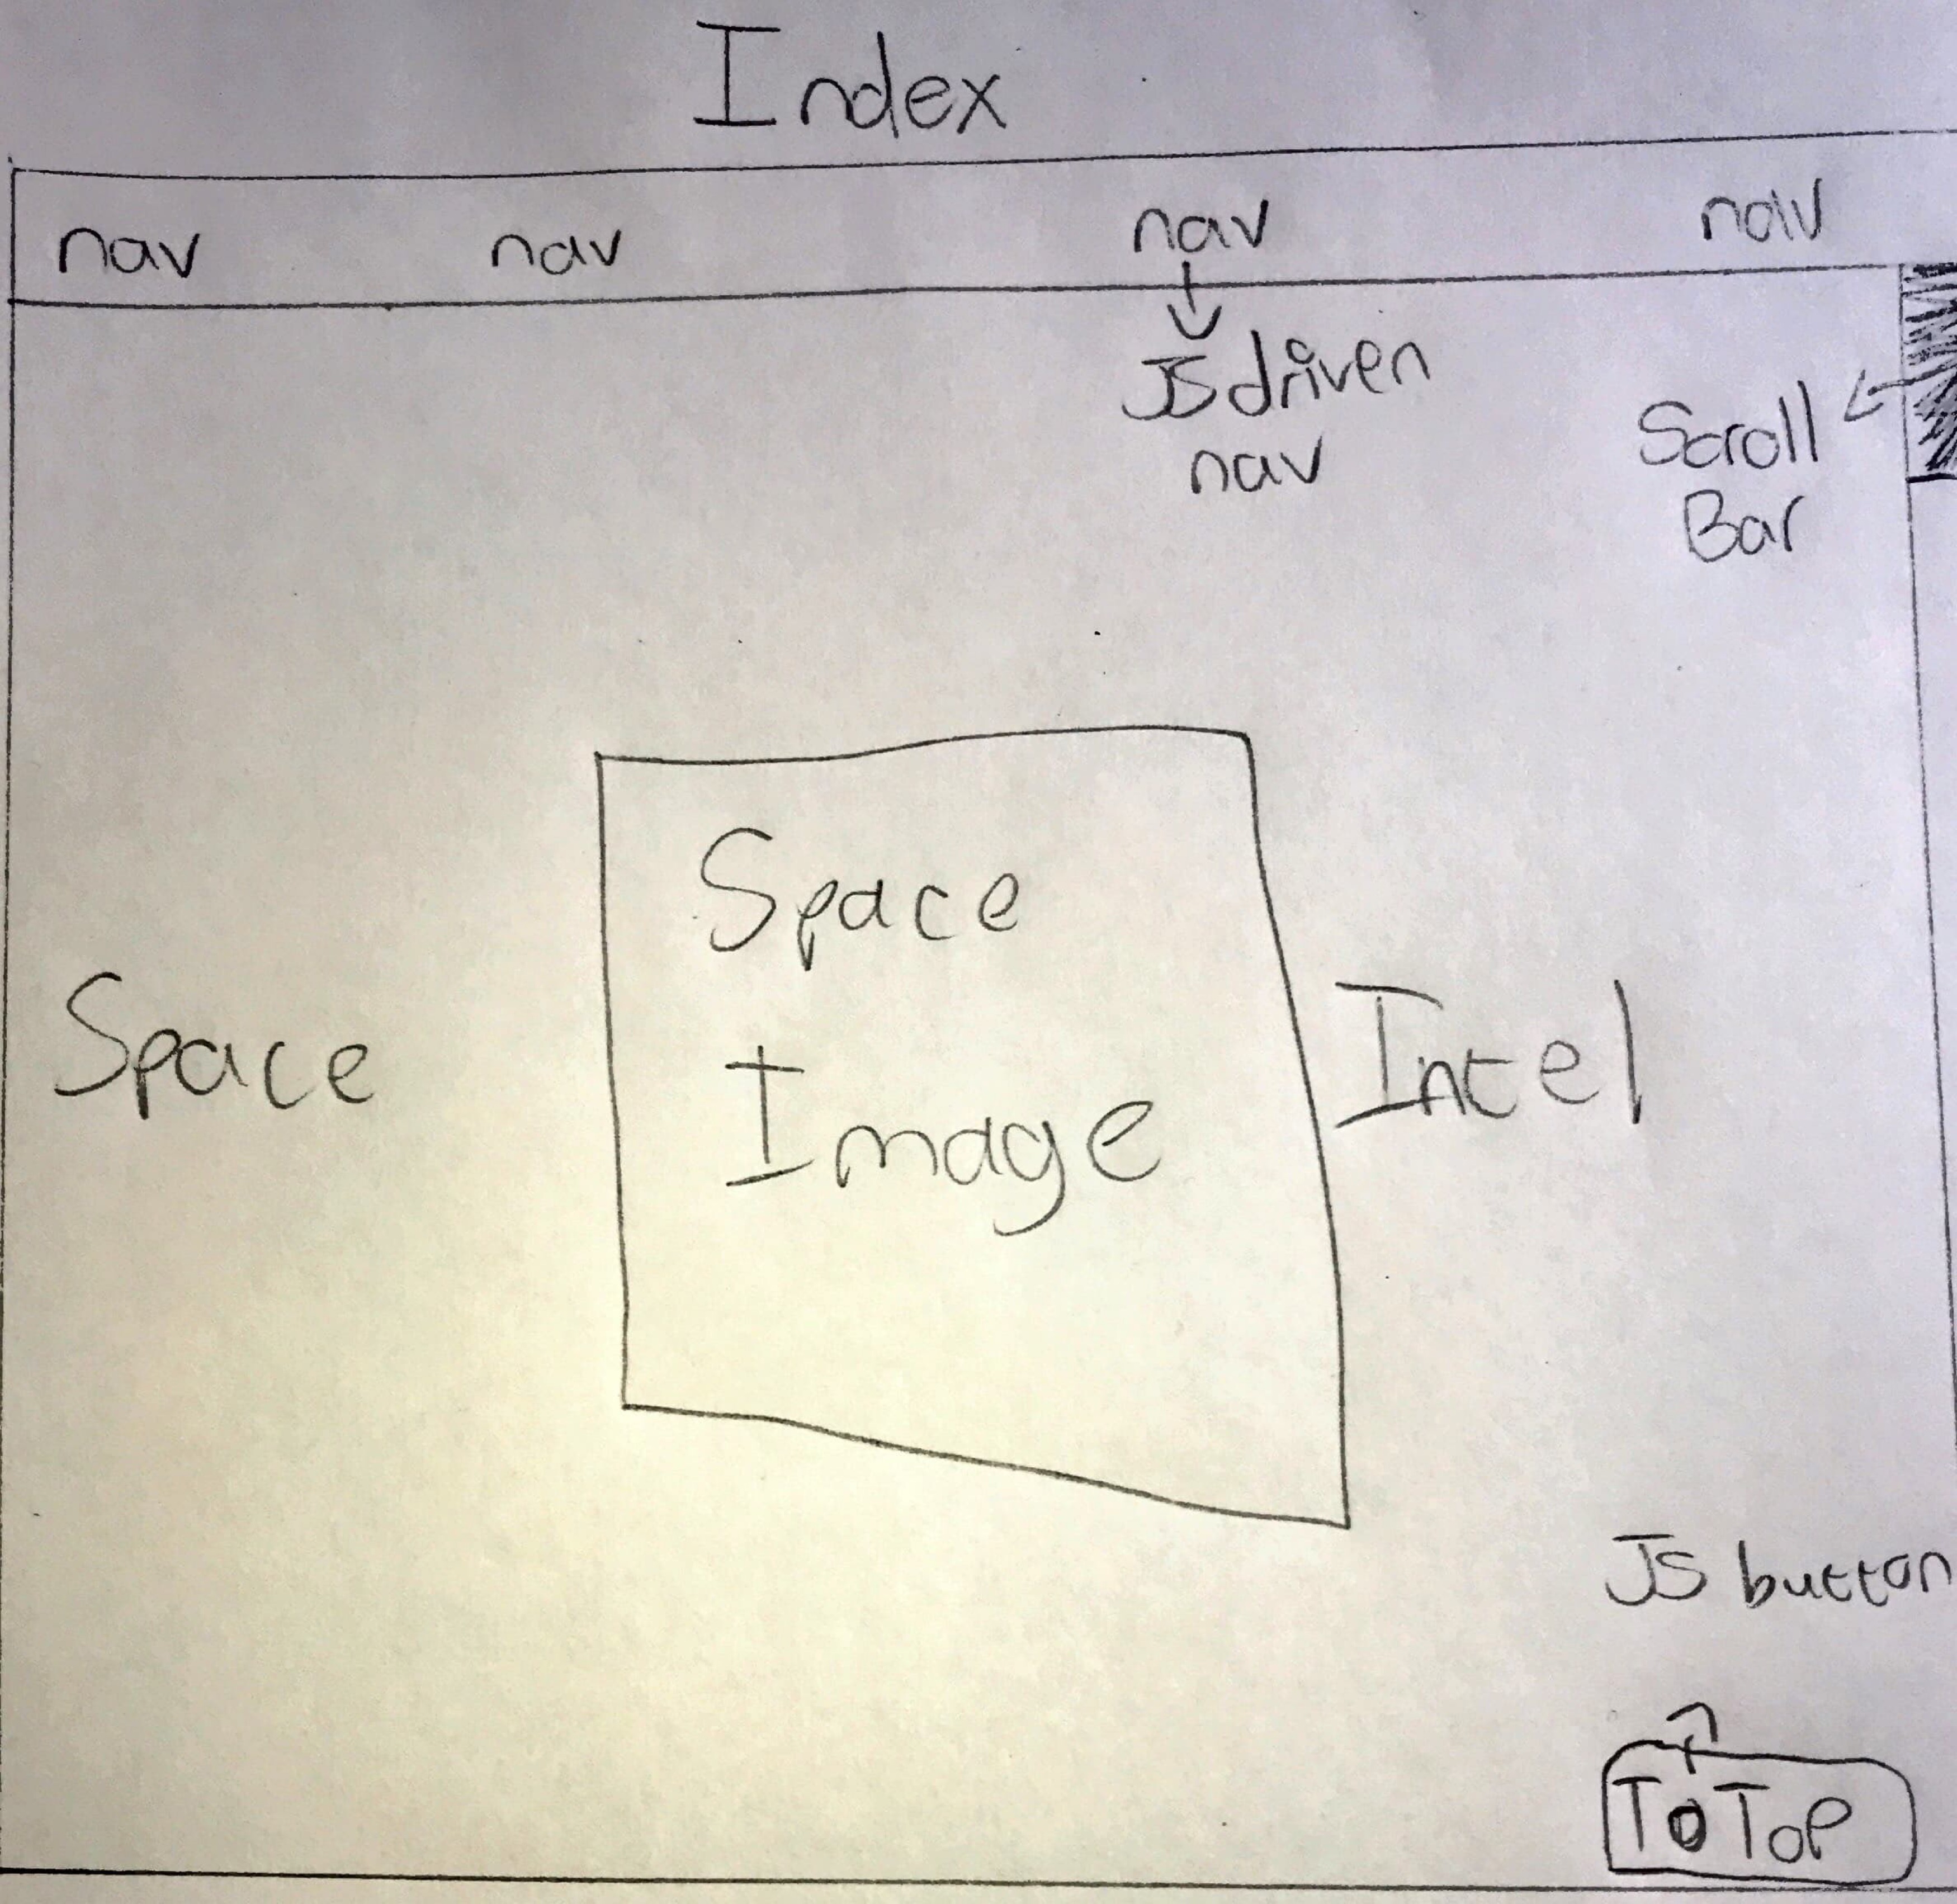 Index
nav nav nav nav
JS driven
nav
Scroll
Bar
Space
Image
Space
Intel
JS button
To Top